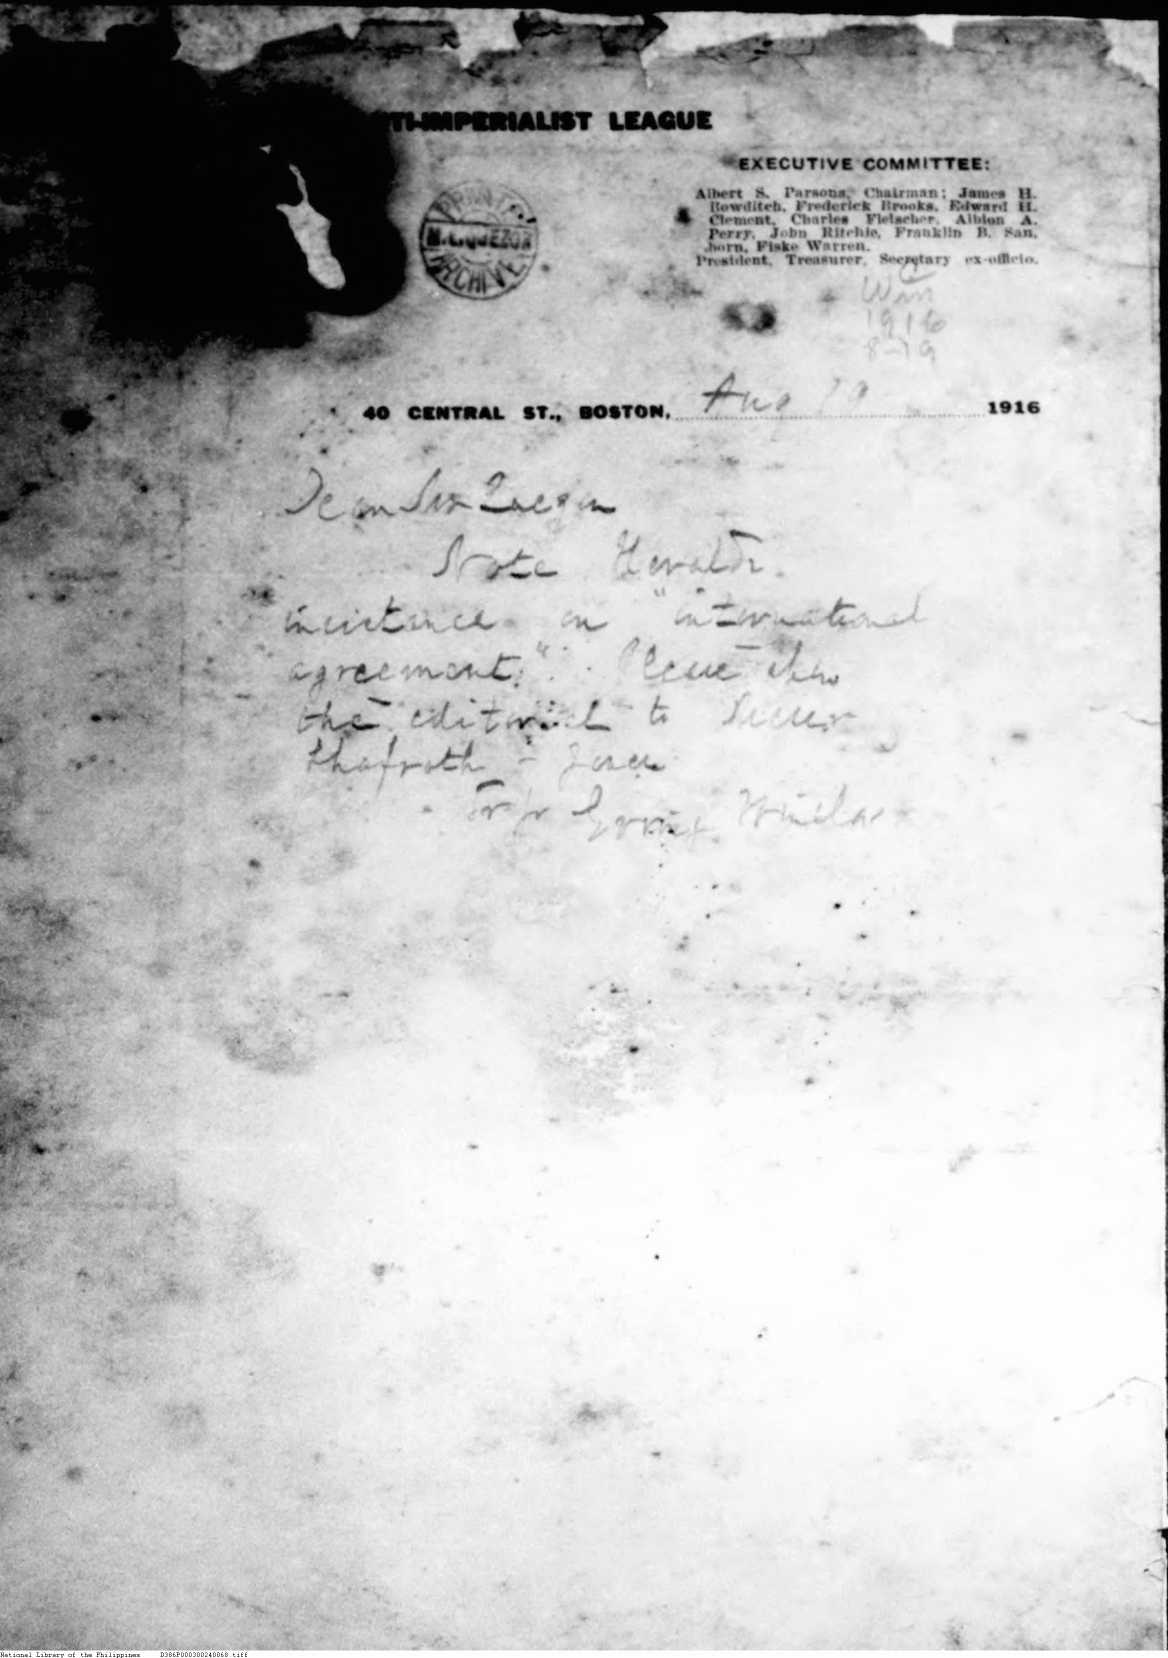 TI-IMPERIALIST LEAGUE
EXECUTIVE COMMITTEE:
Albert S. Parsons, Chairman; James H.
Bowditch, Frederick Brooks, Edward H.
Clement, Charles Fleischer, Albion A.
Perry, John Ritchie, Franklin B. San,
born, Fiske Warren.
President, Treasurer, Secretary ex-officio.
M. L. QUEZON
ARCHIVE
1916
8-19
40 CENTRAL ST., BOSTON, Aug 19 1916
Dear Mr Quezon
Note Herald's
insistence on "international
agreement." Please show
the editorial to
Shafroth -
Erving Winslow
National Library of the Philippines D386P000300240068.tiff